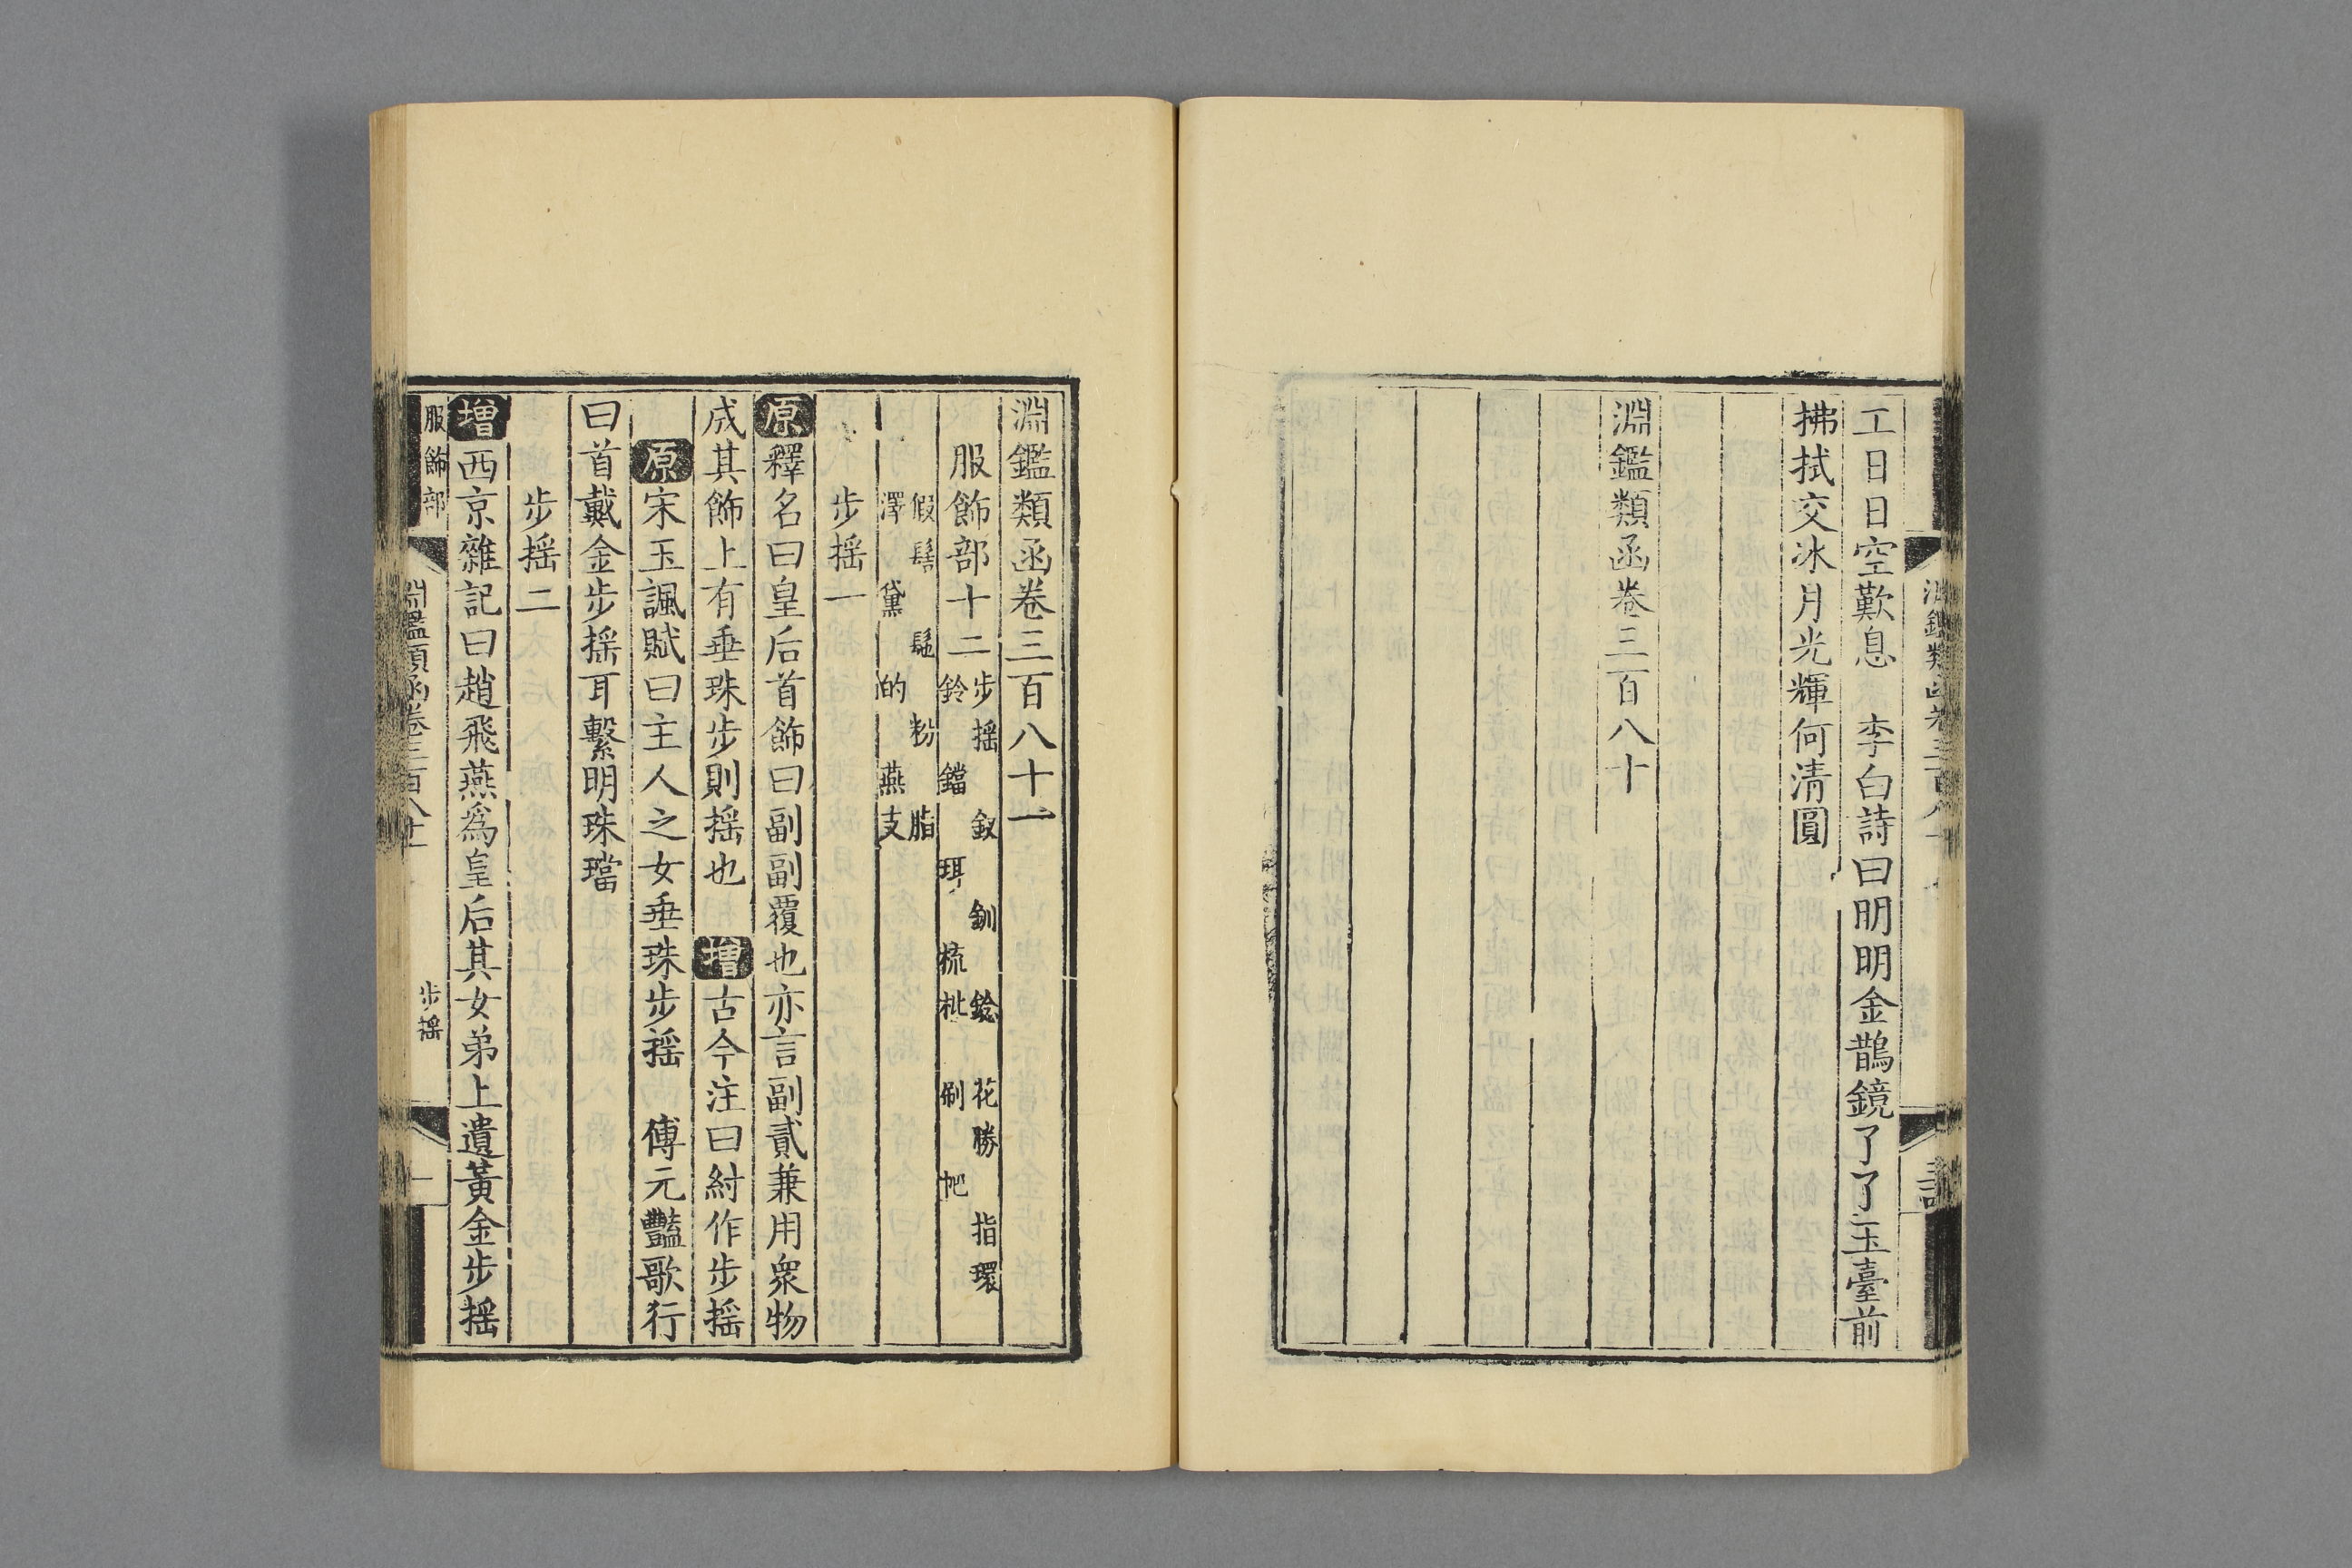 工日日空歎息　李白詩曰明明金鵲鏡了了玉臺前
拂拭交冰月光輝何清圓
淵鑑類函卷三百八十
淵鑑類函卷三百八十一
服飾部十二
步搖　釵　釧　鈴　花勝　指環
鈴　鐺　珥　梳枇　刷　帊
假髻　髲　粉　脂
澤　黛　的　燕支
步搖一
原釋名曰皇后首飾曰副副覆也亦言副貳兼用衆物
成其飾上有垂珠步則搖也　增古今注曰紂作步搖
原宋玉諷賦曰主人之女垂珠步搖　傅元豔歌行
曰首戴金步搖耳繫明珠璫
步搖二
增西京雜記曰趙飛燕爲皇后其女弟上遺黃金步搖
服飾部
淵鑑類函卷三百八十一
步搖
一